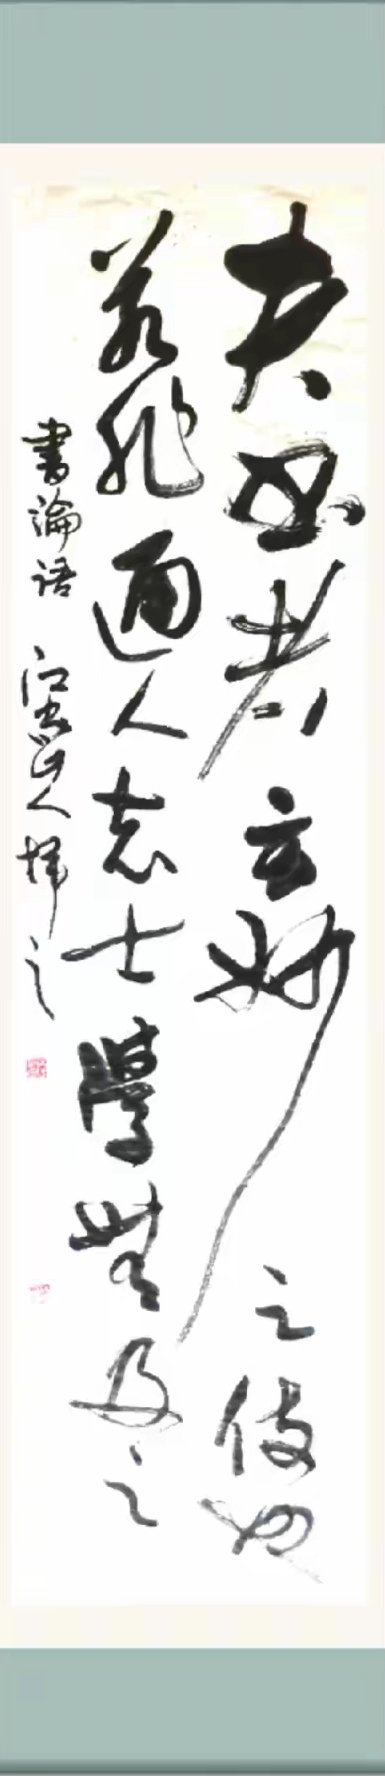 夫书者玄妙之伎也
若非通人志士學無及之
書論语 山人